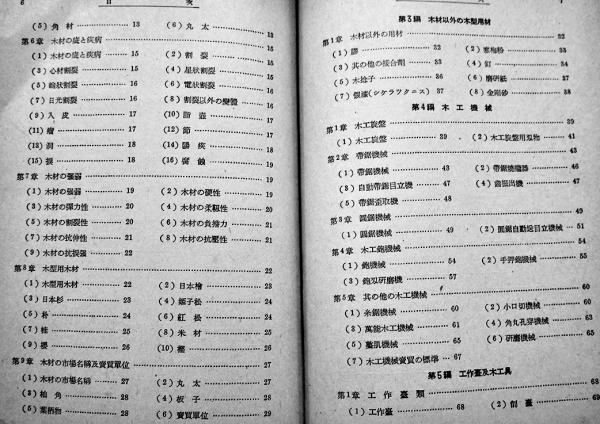 6 目 次
(5) 角材 13 (6) 丸太 13
第6章 木材の疵と疾病 15
(1) 木材の疵と疾病 15 (2) 割裂 15
(3) 心材割裂 15 (4) 星状割裂 15
(5) 輪状割裂 16 (6) 電状割裂 16
(7) 日光割裂 16 (8) 割裂以外の變體 16
(9) 入皮 17 (10) 脂壺 17
(11) 瘤 17 (12) 節 17
(13) 洞 18 (14) 腸疾 18
(15) 捩 18 (16) 腐蝕 19
第7章 木材の強弱 19
(1) 木材の強弱 19 (2) 木材の硬性 19
(3) 木材の彈力性 20 (4) 木材の柔靱性 20
(5) 木材の割裂性 20 (6) 木材の負擔力 21
(7) 木材の抗伸性 21 (8) 木材の抗壓性 21
(9) 木材の抗捩强 22
第8章 木型用木材 22
(1) 木型用木材 22 (2) 日本檜 23
(3) 日本杉 23 (4) 姫子松 24
(5) 朴 24 (6) 紅松 24
(7) 桂 25 (8) 米材 25
(9) 櫻 26 (10) 樫 26
第9章 木材の市場名稱及賣買單位 27
(1) 木材の市場名稱 27 (2) 丸太 27
(3) 桷角 28 (4) 板子 28
(5) 葉柄物 28 (6) 賣買單位 29
次 7
第3編 木材以外の木型用材
第1章 木材以外の用材 32
(1) 膠 32 (2) 寒梅粉 33
(3) 其の他の接合劑 33 (4) 釘 34
(5) 木捻子 36 (6) 磨研紙 37
(7) 假漆(シケラツクニス) 37 (8) 金剛砂 38
第4編 木工機械
第1章 木工旋盤 39
(1) 木工旋盤 39 (2) 木工旋盤用刃物 41
第2章 帶鋸機械 43
(1) 帶鋸機械 43 (2) 帶鋸燒鑞器 46
(3) 自動帶鋸目立機 47 (4) 齒振出機 47
(5) 帶鋸歪取機 48
第3章 圓鋸機械 49
(1) 圓鋸機械 49 (2) 圓鋸自動送目立機械 51
第4章 木工鉋機械 54
(1) 鉋機械 54 (2) 手押鉋機械 55
(3) 鉋刄研磨機 57
第5章 其の他の木工機械 60
(1) 糸鋸機械 60 (2) 小口切機械 60
(3) 萬能木工機械 61 (4) 角丸孔穿機械 63
(5) 整肌機械 65 (6) 研磨機械 65
(7) 木工機械賣買の標準 67
第5編 工作臺及木工具
第1章 工作臺類 68
(1) 工作臺 68 (2) 削臺 69